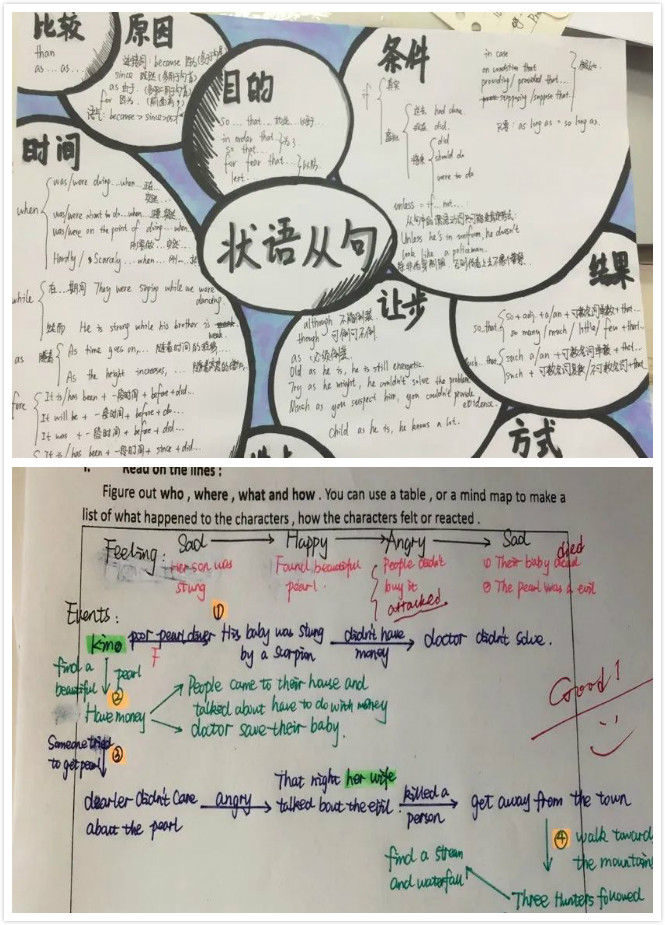 比较
than
as... as...
原因
连接词: because
since 既然
as 由于
for
语气: because > since > as
目的
so ... that...
in order that...
so that...
for fear that...
lest
条件
if
真实
虚拟
过去 had done
现在 did
将来
did
should do
were to do
in case
on condition that
providing / provided that...
supposing / suppose that.
只要: as long as = so long as.
unless = if... not...
Unless he's in uniform, he doesn't
look like a policeman.
时间
when
was/were doing...when...正在...
突然...
was/were about to do...when...
was/were on the point of doing...when...
Hardly / Scarcely... when...
while
在...期间 They were singing while we were
dancing.
He is strong while his brother is weak.
as
随着
As time goes on,... 随着时间的推移...
As the height increases, ...
fore
It is/has been + 一段时间 + before + did...
It will be + 一段时间 + before + do...
It was + 一段时间 + before + did...
It is/has been + 一段时间 + since + did...
状语从句
让步
although 不可倒装
though 可倒可不倒
as : 必须倒装
Old as he is, he is still energetic.
Try as he might, he couldn't solve the problem.
Much as you suspect him, you couldn't provide
evidence.
Child as he is, he knows a lot.
结果
so...that
so + adj. + a/an + 可数名词单数 + that...
so many / much / little / few + that...
such...that
such a/an + 可数名词单数 + that...
such + 可数名词复数/不可数名词 + that
方式
Read on the lines :
Figure out who , where , what and how . You can use a table , or a mind map to make a
list of what happened to the characters , how the characters felt or reacted .
Feeling: Sad Happy Angry Sad
Her son was
stung
Found beautiful
pearl.
People didn't
buy it
attacked
① Their baby dead
died
② The pearl was a evil
Events:
①
kino poor pearl diver His baby was stung
by a scorpion
didn't have
money
doctor didn't solve.
F
find a pearl
beautiful
②
Have money
People came to their house and
talked about have to do with money
doctor save their baby.
Good!
Someone tried
to get pearl
③
dearler didn't care
about the pearl
angry
That night her wife
talked bout the evil.
killed a
person
get away from the town
④ walk toward
the mountain
Three Hunters followed
find a stream
and waterfall